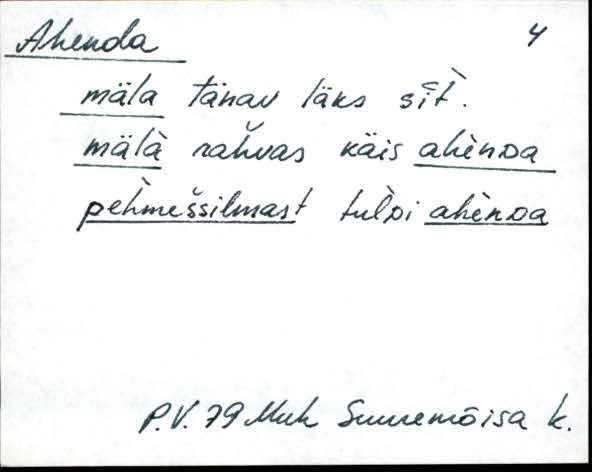 Ahenda 4
mäla tänav läks sìt̀.
mälà rahvas käis ahènda
pèhmeššilmast tulìi ahènda
P.V. 79 Muh Suuremõisa k.